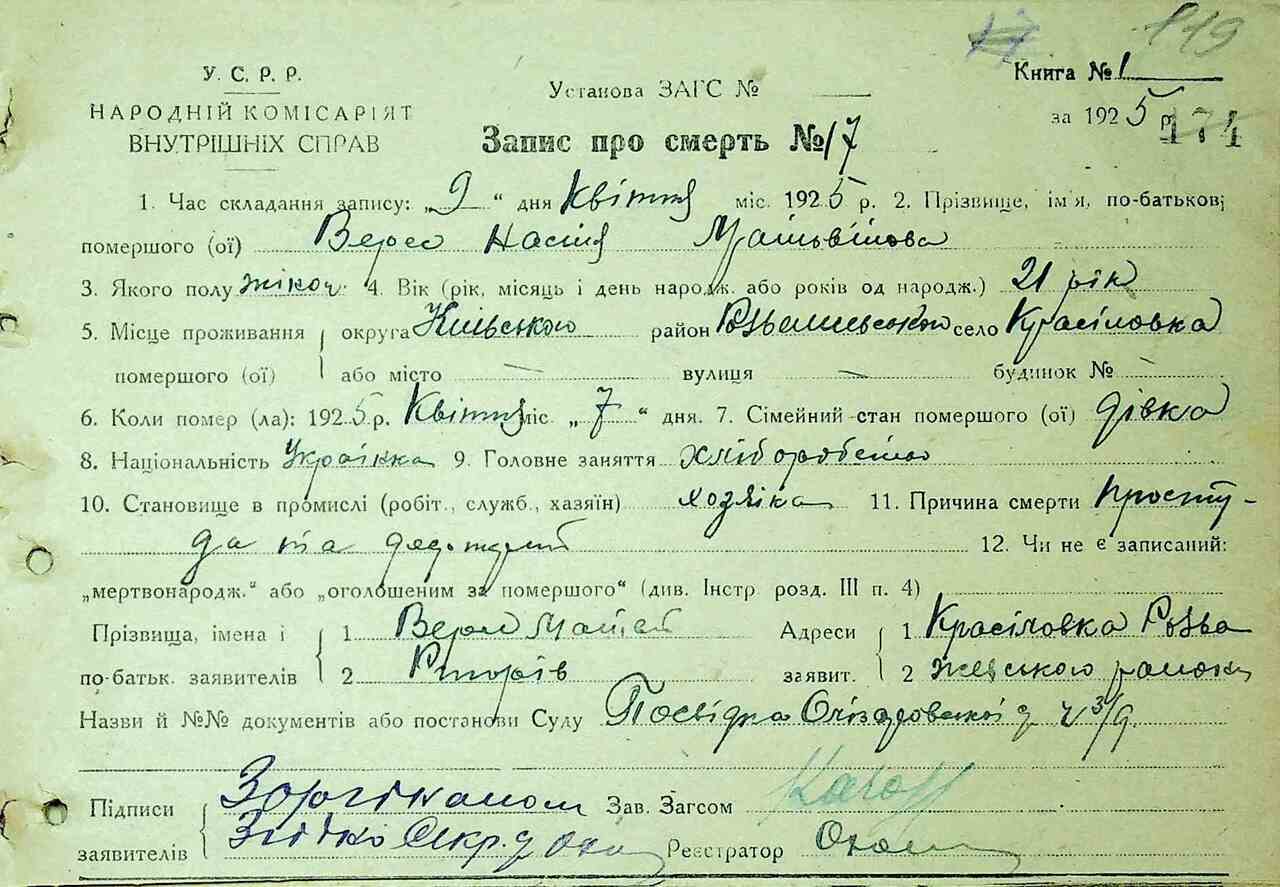 119
17
У. С. Р. Р.
НАРОДНІЙ КОМІСАРІЯТ
ВНУТРІШНІХ СПРАВ
Установа ЗАГС №
Книга № 1
за 1925 р.
174
Запис про смерть № 17
1. Час складання запису: „9“ дня Квітня міс. 1925 р. 2. Прізвище, ім'я, по-батькові
помершого (ої) Верес Настя
3. Якого полу жіноч. 4. Вік (рік, місяць і день народж. або років од народж.) 21 рік
5. Місце проживання округа Київського район село Красіловка
помершого (ої) або місто — вулиця — будинок №
6. Коли помер (ла): 1925 р. Квітня міс. „7“ дня. 7. Сімейний стан помершого (ої) дівка
8. Національність Українка 9. Головне заняття хліборобство
10. Становище в промислі (робіт., служб., хазяїн) хозяйка 11. Причина смерти просту-
да та 12. Чи не є записаний:
„мертвонародж.“ або „оголошеним за помершого“ (див. Інстр. розд. III п. 4)
Прізвища, імена і 1 Верес Матвій Адреси 1 Красіловка Розва
по-батьк. заявителів 2 заявит. 2 жевського району
Назви й №№ документів або постанови Суду Посвідка ч 3/9.
Підписи Зав. Загсом
заявителів Реєстратор